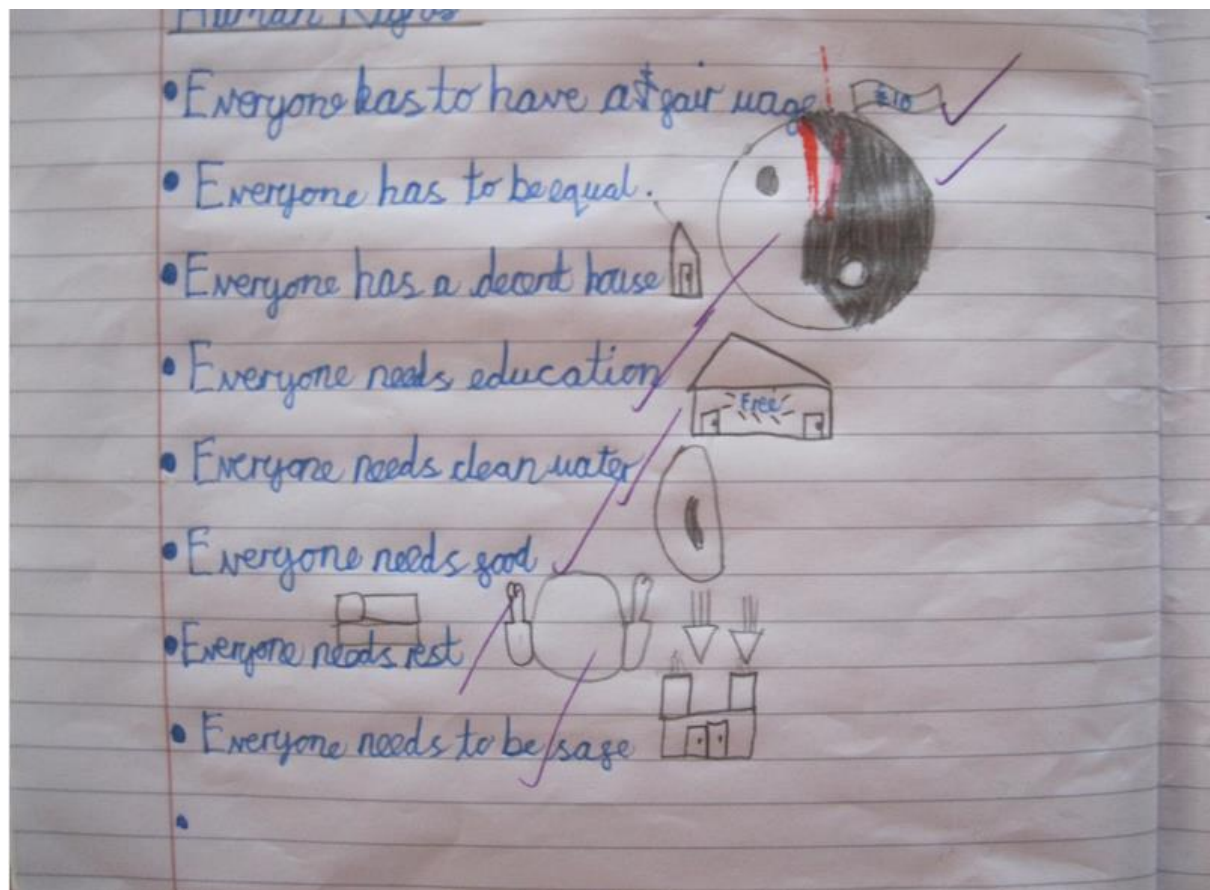 Human Rights
• Everyone has to have a fair wage £10
• Everyone has to be equal.
• Everyone has a decent house
• Everyone needs education
Free
• Everyone needs clean water
• Everyone needs food
• Everyone needs rest
• Everyone needs to be safe
•